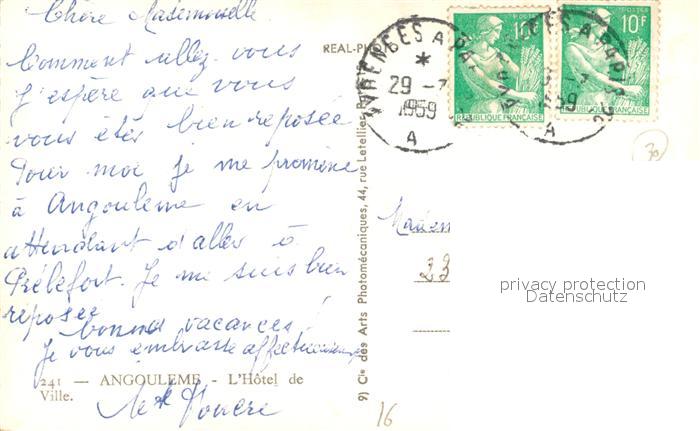 Chère Mademoiselle
Comment allez vous
J'espère que vous
vous êtes bien reposée
Pour moi je me promène
à Angoulême en
attendant d'aller à
Je me suis bien
reposée
bonnes vacances !
Je vous embrasse affectueusement
241 — ANGOULEME - L'Hôtel de
Ville.
REAL-PH
9) Cie des Arts Photomécaniques, 44, rue Letellier
A PARIS
29 -7
1959
A
10F
REPUBLIQUE FRANÇAISE
10F
REPUBLIQUE FRANÇAISE
1959
A
30
Madem
23
privacy protection
Datenschutz
16